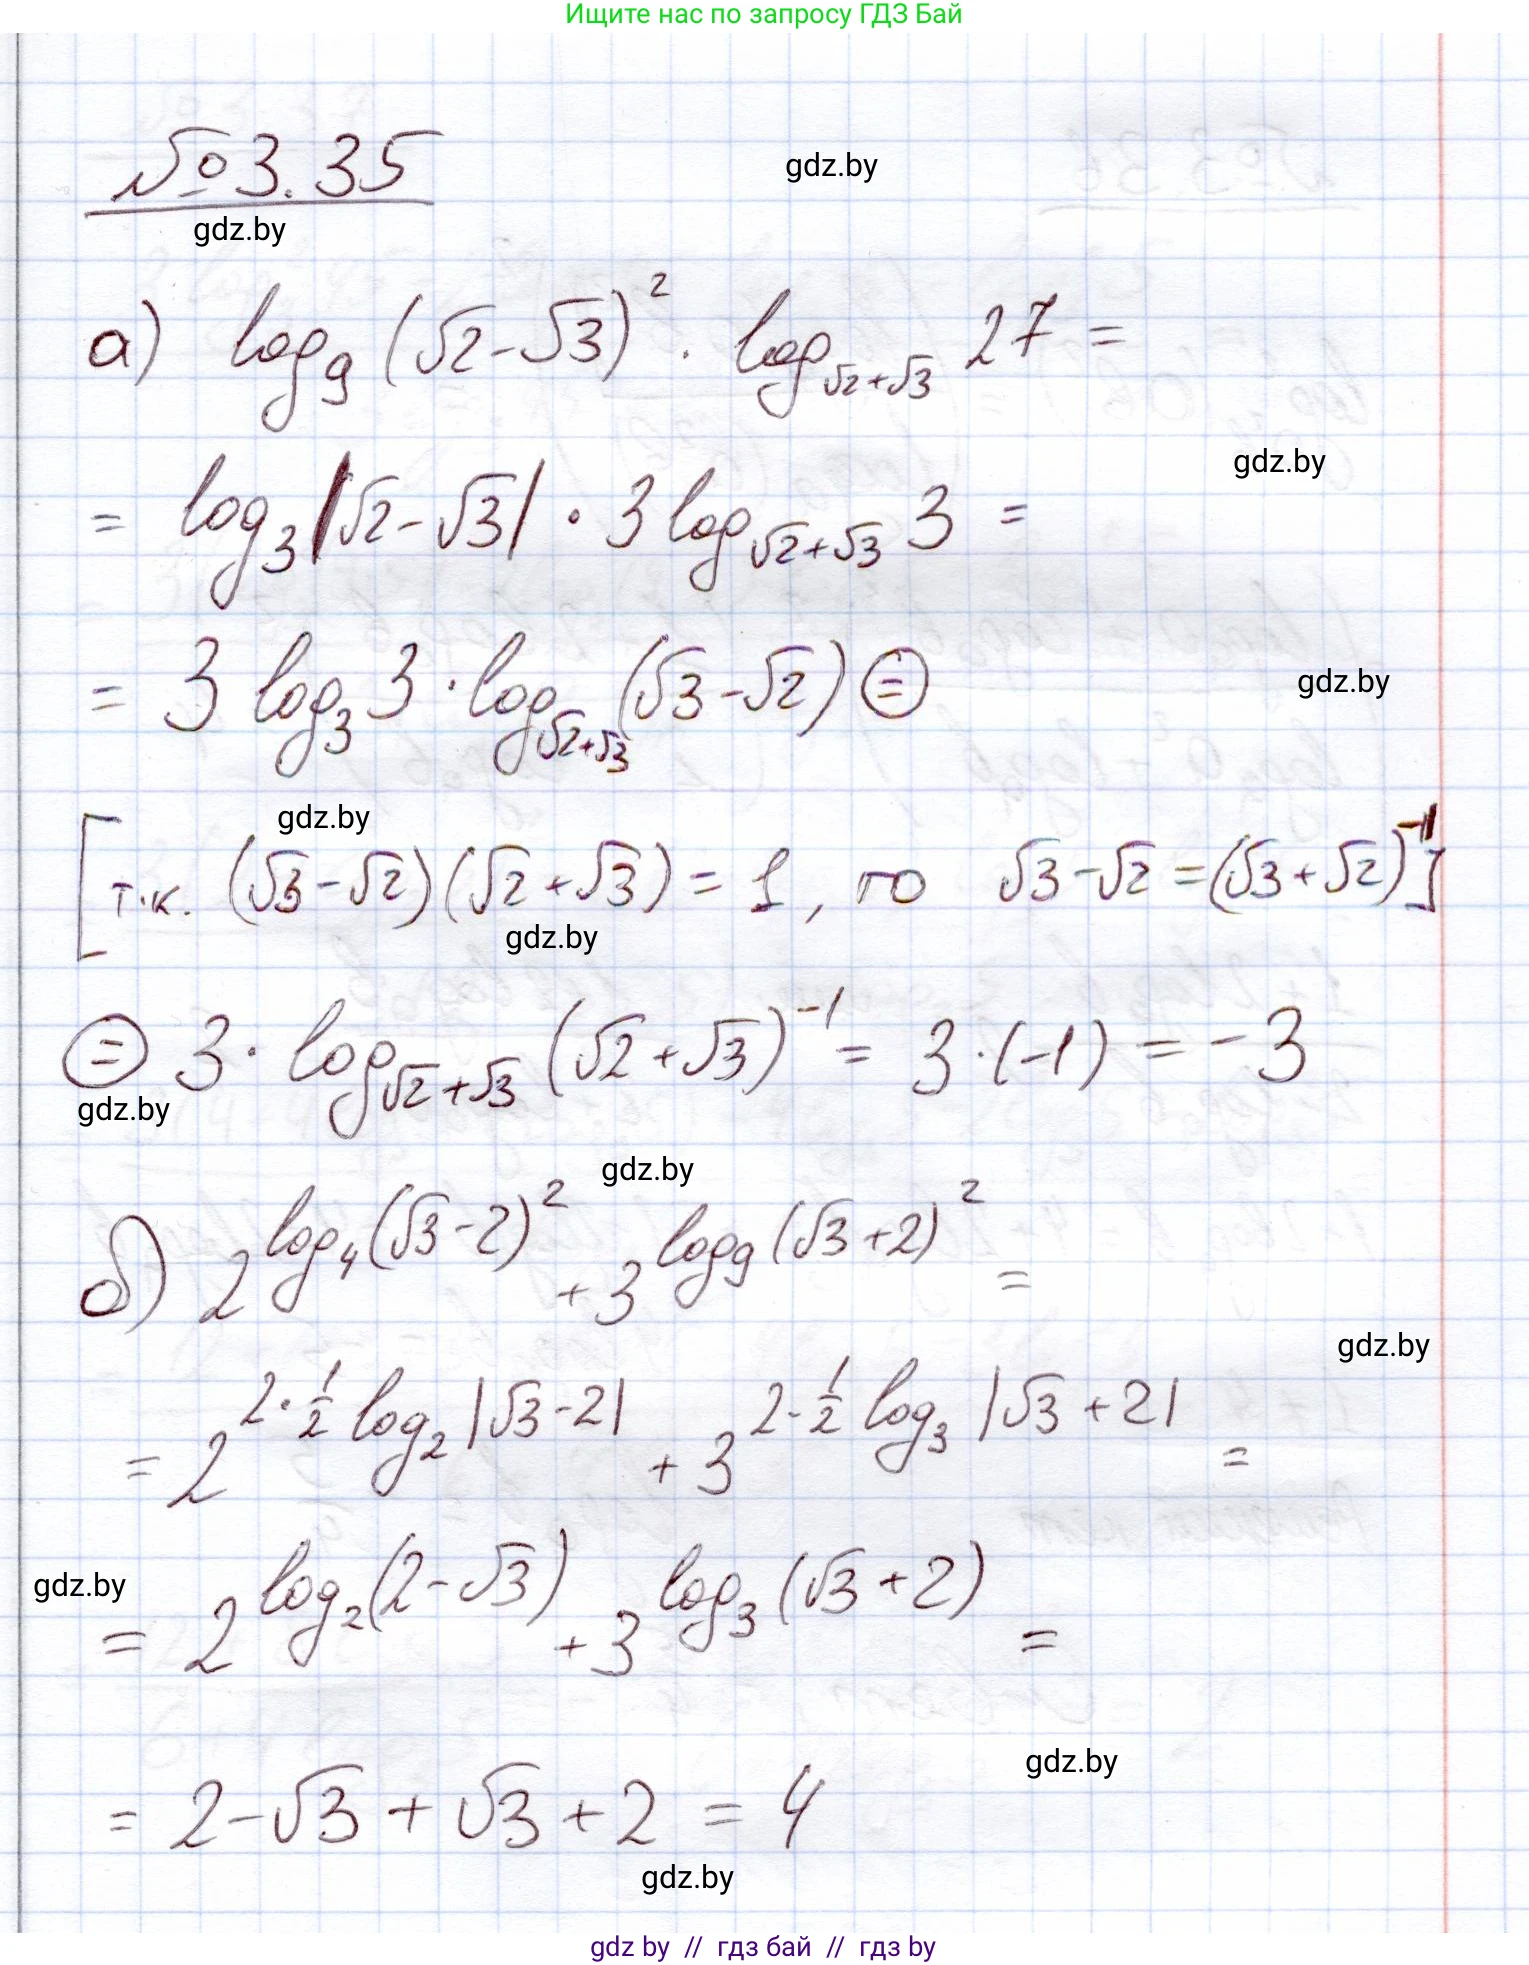 Ищите нас по запросу ГДЗ Бай
№3.35
gdz.by
gdz.by
а) log₉(√2-√3)² · log_{√2+√3} 27 =
gdz.by
= log₃|√2-√3| · 3 log_{√2+√3} 3 =
= 3 log₃ 3 · log_{√2+√3}(√3-√2) ⊜
gdz.by
gdz.by
[т.к. (√3-√2)(√2+√3) = 1, то √3-√2 = (√3+√2)⁻¹]
gdz.by
⊜ 3 · log_{√2+√3}(√2+√3)⁻¹ = 3·(-1) = -3
gdz.by
gdz.by
б) 2^{log₄(√3-2)²} + 3^{log₉(√3+2)²} =
gdz.by
= 2^{2·½ log₂|√3-2|} + 3^{2·½ log₃|√3+2|} =
gdz.by
= 2^{log₂(2-√3)} + 3^{log₃(√3+2)} =
gdz.by
= 2-√3+√3+2 = 4
gdz.by
gdz by // гдз бай // гдз by